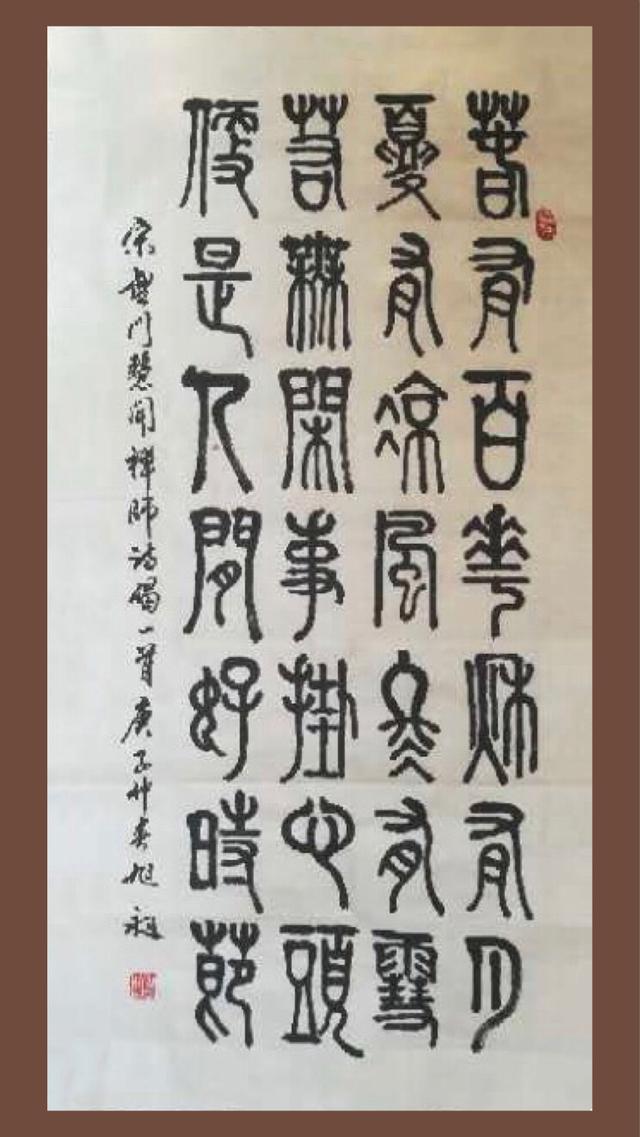 春有百花秋有月
夏有涼風冬有雪
若無閑事掛心頭
便是人間好時節
宋無門慧開禅師诗偈一首庚子仲春旭